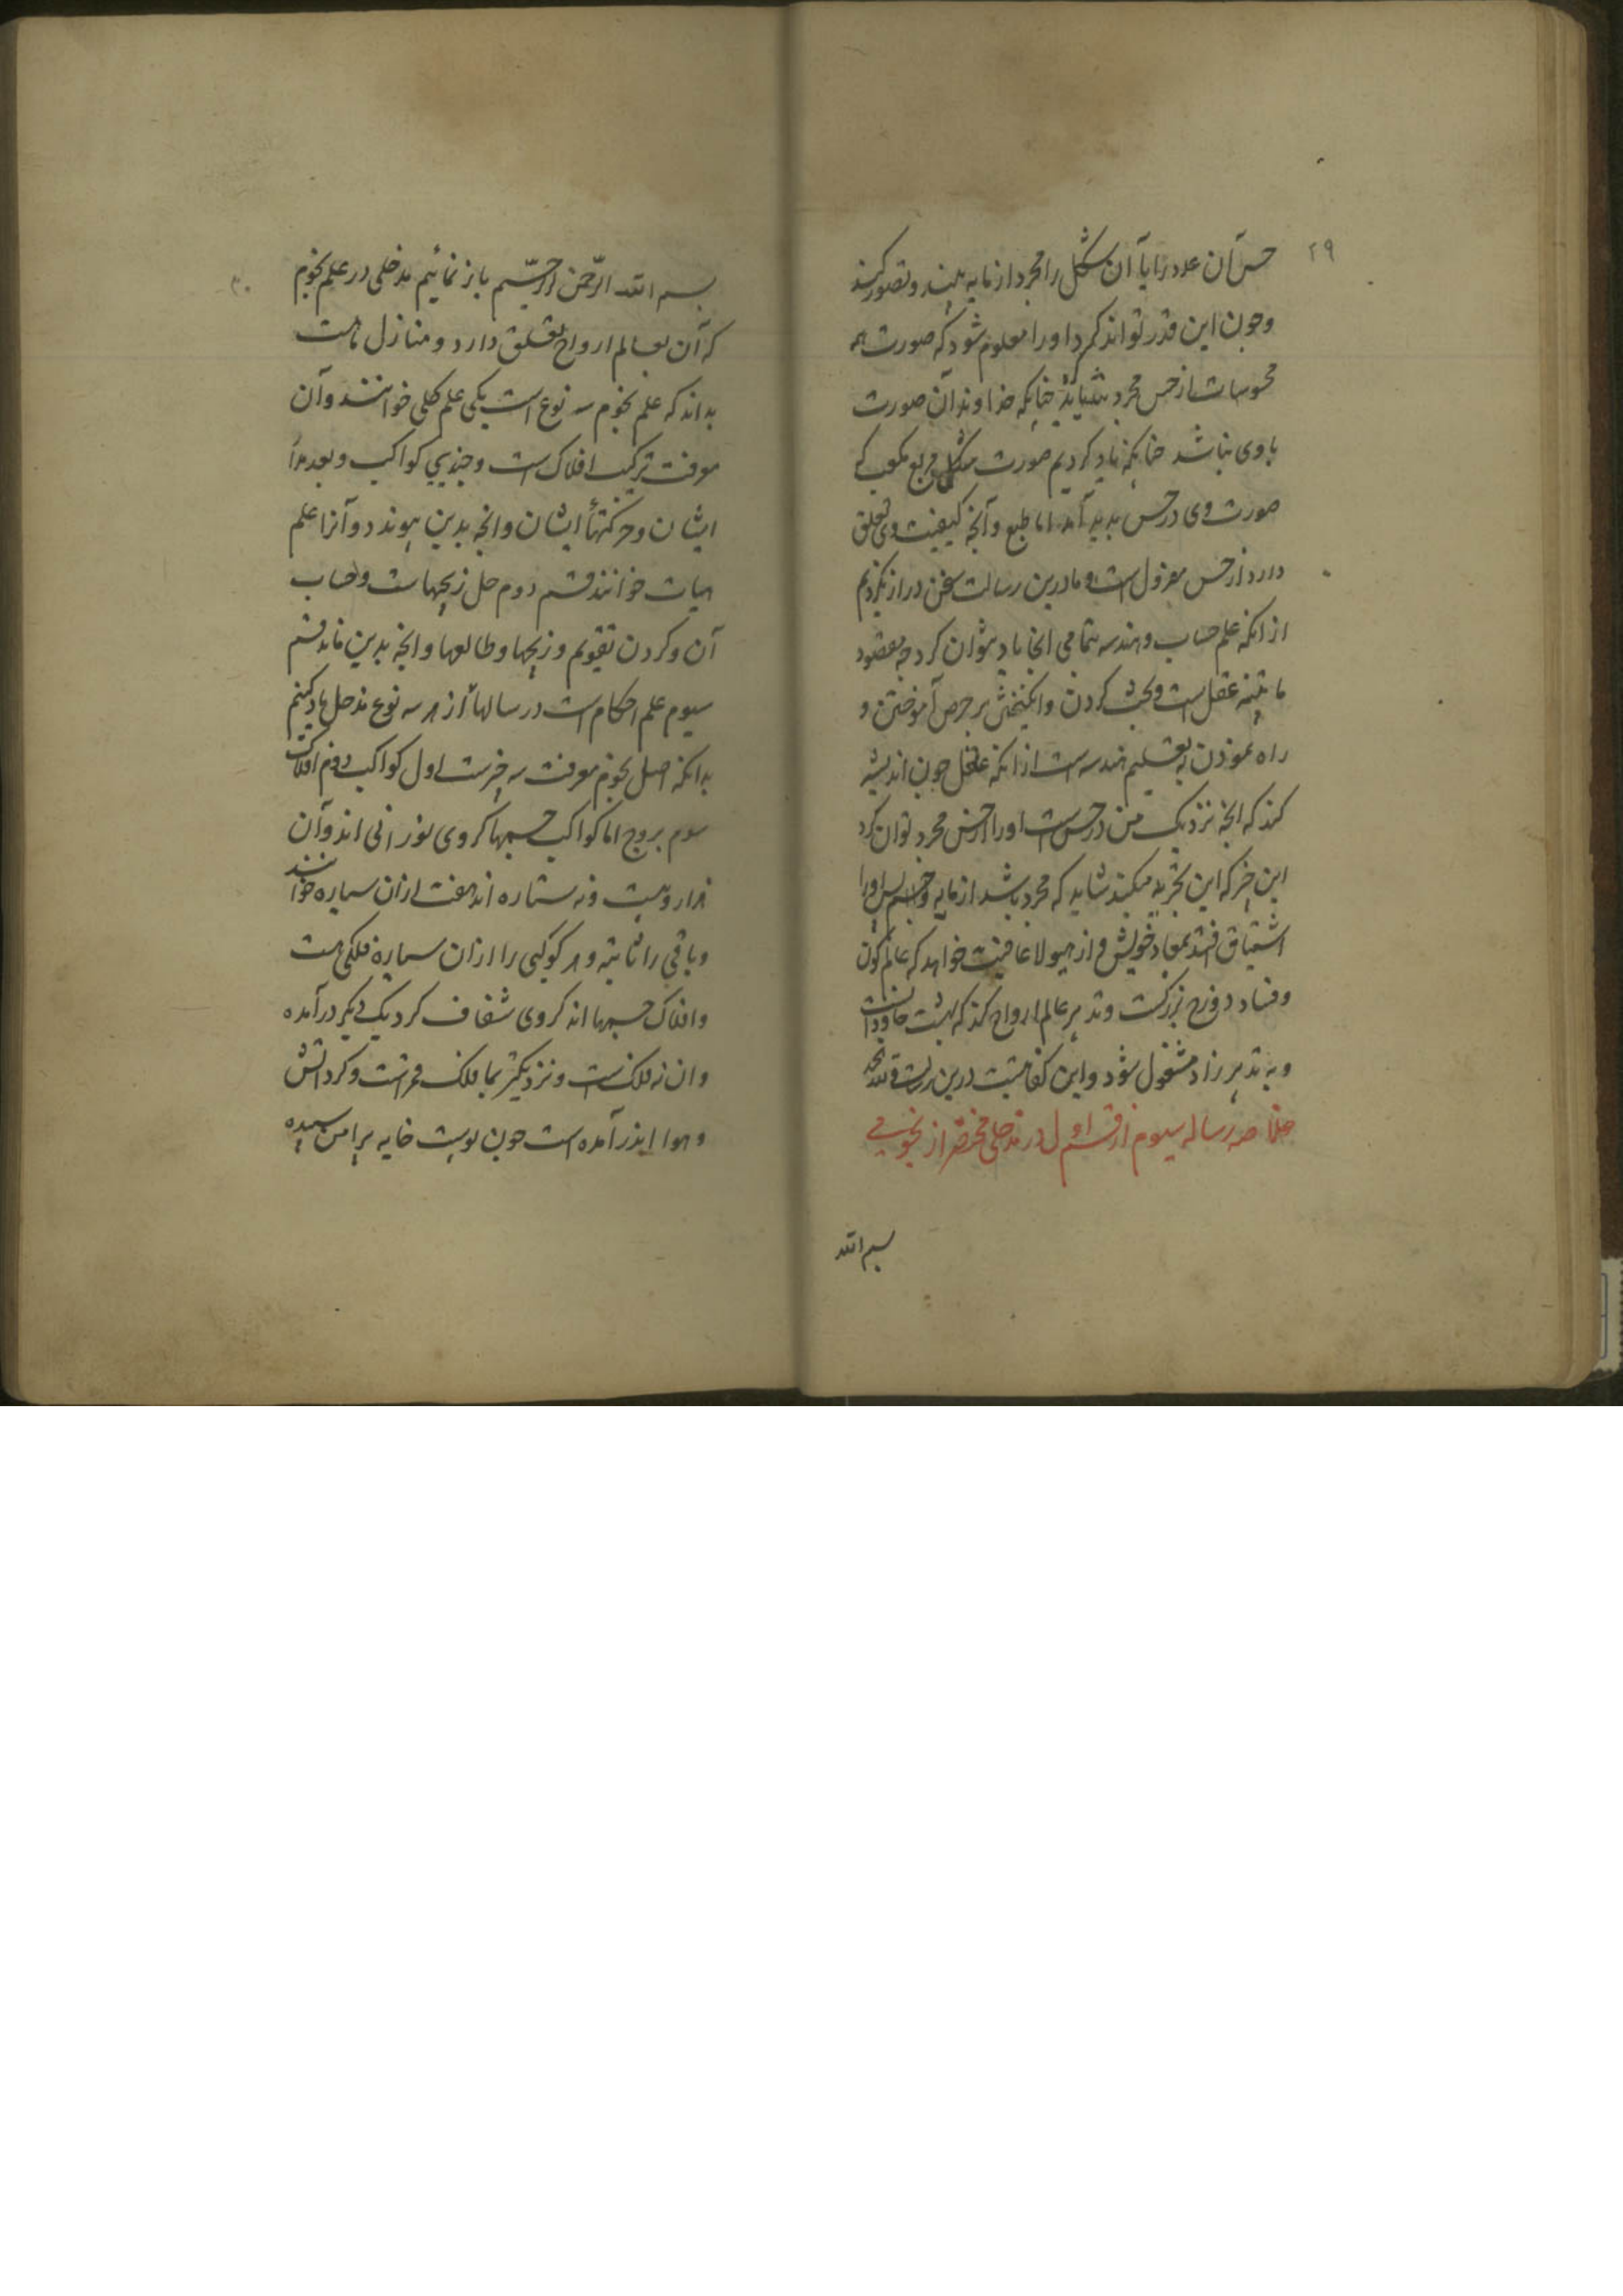 ۲۹
حس آن عدد را یا آن شکل را مجرد از مایه بیند و تصور کند
وچون این قدر تواند کرد او را معلوم شود که صورت همه
محسوسات از حس مجرد بنماید چنانکه خداوند آن صورت
با وی نباشد چنانکه یاد کردیم صورت شکل مربع مکعب که
صورت وی در حس پدید آمد اما طبع وآنچه کیفیت وی تعلق
دارد از حس معزول است وما درین رسالت سخن دراز نکردیم
از انکه علم حساب وهندسه بتمامی اینجا یاد نتوان کرد چه مقصود
ما تنبیه عقل است وبحث کردن وانگیختن بر حرص آموختن و
راه نمودن به تعلیم هندسه است از انکه عاقل چون اندیشه
کند که انچه نزدیک من در حس است او را از حس مجرد توان کرد
این چیز که این تجربه میکند شاید که مجرد باشد از مایه وجسم پس او را
اشتیاق افتد بمعاد خویش و از هیولا عافیت خواهد که عالم کون
وفساد دوزخ بزرگست وتدبیر عالم ارواح کند که بهشت جاودانست
وبه تدبیر زاد مشغول شود واین کفایتست درین رسالت
خلاصه رساله سیوم از قسم اول در مدخلی مختصر از نجوم
بسم الله
۳۰
بسم الله الرحمن الرحیم باز نمائیم مدخلی در علم نجوم
که آن بعالم ارواح تعلق دارد ومنازل ماست
بداند که علم نجوم سه نوع است یکی علم کلی خوانند وآن
معرفت ترکیب افلاک است وچندی کواکب وبعدها
ایشان وحرکتهأ ایشان وانچه بدین پیوندد وآنرا علم
هیات خوانند قسم دوم حل زیجهاست وحساب
آن وکردن تقویم وزیجها وطالعها وانچه بدین ماند قسم
سیوم علم احکام است در رسالهأ از هر سه نوع مدخل یاد کنیم
بدانکه اصل نجوم معرفت سه چیزست اول کواکب دوم افلاک
سوم بروج اما کواکب جسمها کروی نورانی اند وآن
هزار وبیست ونه ستاره اند هفت ازان سیاره خوانند
وباقی را ثابته وهر کوکبی را ازان سیاره فلکی است
وافلاک جسمها اند کروی شفاف گرد یک دیگر درآمده
وان نه فلک است ونزدیکتر بما فلک قمر است وگرد آتش
وهوا اندر آمده است چون پوست خایه پیرامن سپیده